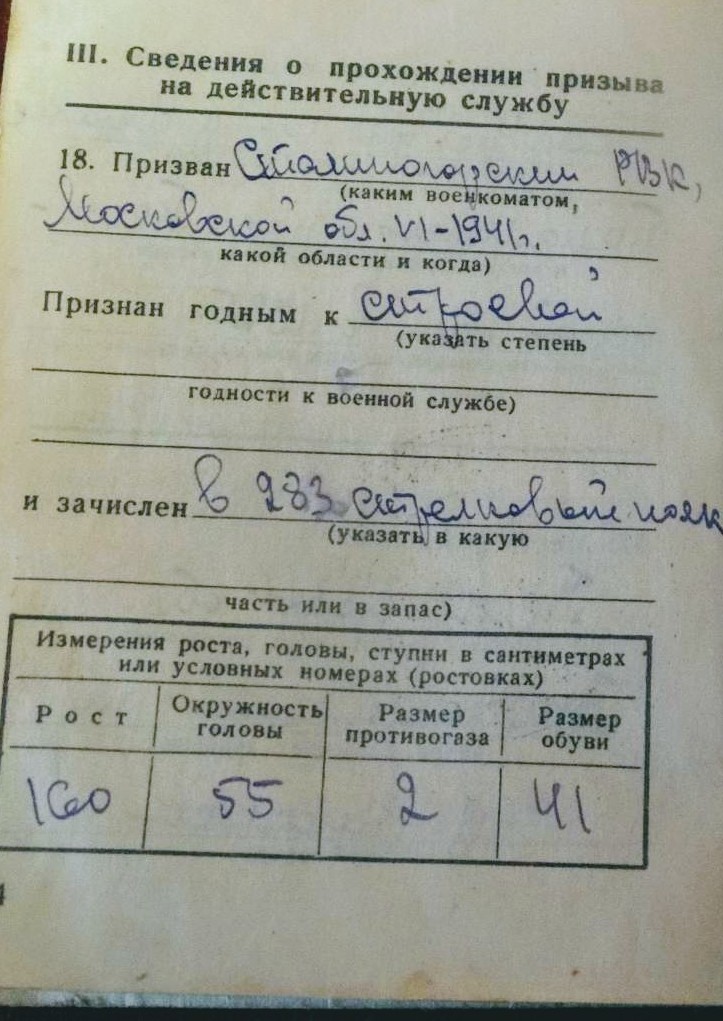 III. Сведения о прохождении призыва
на действительную службу
18. Призван Сталиногорским РВК,
(каким военкоматом,
Московской обл. VI-1941г.
какой области и когда)
Признан годным к строевой
(указать степень
годности к военной службе)
и зачислен в 283 стрелковый полк
(указать в какую
часть или в запас)
Измерения роста, головы, ступни в сантиметрах
или условных номерах (ростовках)
Рост Окружность головы Размер противогаза Размер обуви
160 55 2 41
4